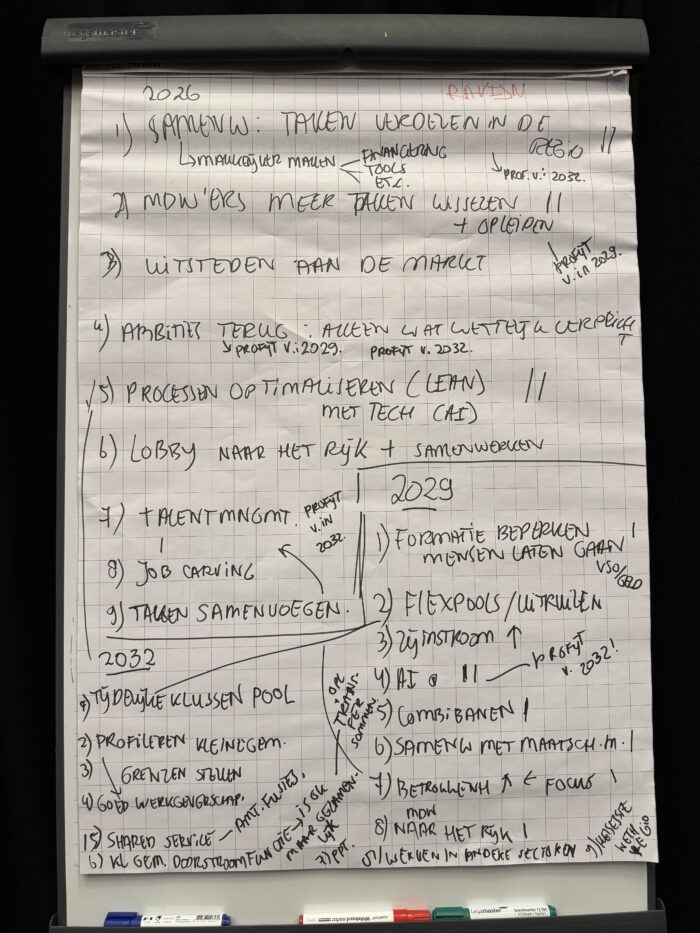 Legamaster
2026
RAVIJN
1) SAMENW: TAKEN VERDELEN IN DE REGIO ||
↳ MAKKELIJKER MAKEN
FINANCIERING
TOOLS
ETC.
↘ PROF. v.i 2032.
2) MDW'ERS MEER TAKEN WISSELEN ||
+ OPLEIDEN
PROFYT
v. in 2029.
3) UITSTEDEN AAN DE MARKT
4) AMBITIES TERUG : ALLEEN WAT WETTELIJK VERPLICHT
↘ PROFYT v.i 2029. PROFYT v. 2032.
5) PROCESSEN OPTIMALISEREN (LEAN) ||
MET TECH (AI)
6) LOBBY NAAR HET RIJK + SAMENWERKEN
7) TALENTMNGMT.
PROFYT
v. in
2032.
8) JOB CARVING
9) TAKEN SAMENVOEGEN.
2029
1) FORMATIE BEPERKEN |
MENSEN LATEN GAAN
VSO/GELD
2) FLEXPOOLS/UITRUILEN
3) ZIJINSTROOM ↑
4) AI ||
PROFYT
v. 2032!
5) COMBIBANEN |
6) SAMENW MET MAATSCH. M. |
7) BETROKKENH ↑ ← FOCUS |
MDW
8) NAAR HET RIJK |
WERVEN IN ANDERE SECTOREN
9)
WETH
REGIO
2032
1) TIJDELIJKE KLUSSEN POOL
2) PROFILEREN KLEINE GEM.
3) GRENZEN STELLEN
4) GOED WERKGEVERSCHAP.
5) SHARED SERVICE — AMT. FUSIES,
6) KL GEM. DOORSTROOMFUNCTIE → IS OK
MAAR GEZAMEN-
LIJK
7) PPT.
TRANS-
FER
SOMMEN